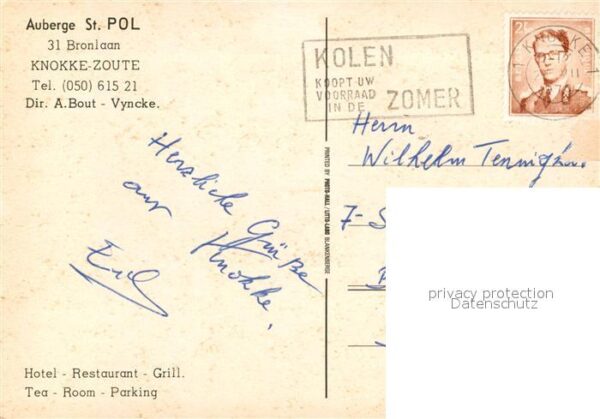 Auberge St. POL
31 Bronlaan
KNOKKE-ZOUTE
Tel. (050) 615 21
Dir. A.Bout - Vyncke.
KOLEN
KOOPT UW
VOORRAAD
IN DE ZOMER
KNOKKE
Herrn
Wilhelm
7-S
Herzliche Grüße
aus Knokke,
PRINTED BY PHOTO-HALL / LITTO-LABO BLANKENBERGE
privacy protection
Datenschutz
Hotel - Restaurant - Grill.
Tea - Room - Parking